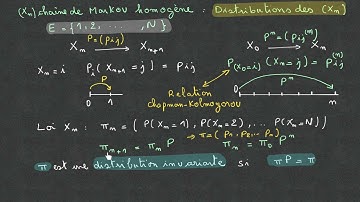 (Xn) chaîne de Markov homogène : Distributions des (Xn)
E = {1, 2, ...., N}
Xn P=(Pij) Xn+1 X0 P^n = (Pij^(n)) Xn
Xn = i Pi(Xn+1 = j) = Pij P(X0=i)(Xn = j) = Pij^(n)
P P^n
0 1 0 1 n
Relation
chapman-Kolmogorov
Loi Xn : πn = (P(Xn=1), P(Xn=2), ... P(Xn=N))
π = (P1, P2, ... Pn)
πn+1 = πn P πn = π0 P^n
π est une distribution invariate si πP = π